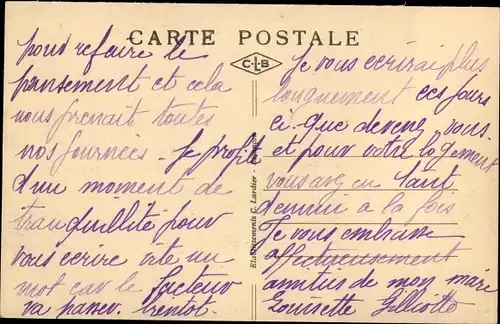 CARTE POSTALE
C.L.B
pour refaire le
pansement et cela
nous prenait toutes
nos journées. Je profite
d'un moment de
tranquillité pour
vous écrire vite un
mot car le facteur
va passer. bientot.
Etablissements C. Lardier
Je vous ecrirai plus
longuement ces jours
ci. Que devenez vous.
et pour votre logement
vous avez eu tant
d'ennui a la fois
Je vous embrasse
affectueusement
amities de mon mari